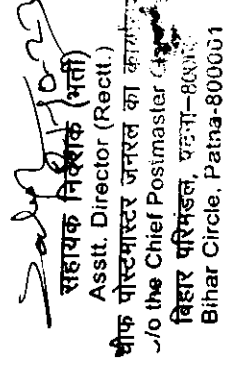 सहायक निदेशक (भर्ती)
Asstt. Director (Rectt.)
चीफ पोस्टमास्टर जनरल का
o/o the Chief Postmaster
बिहार परिमंडल, पटना-800001
Bihar Circle, Patna-800001